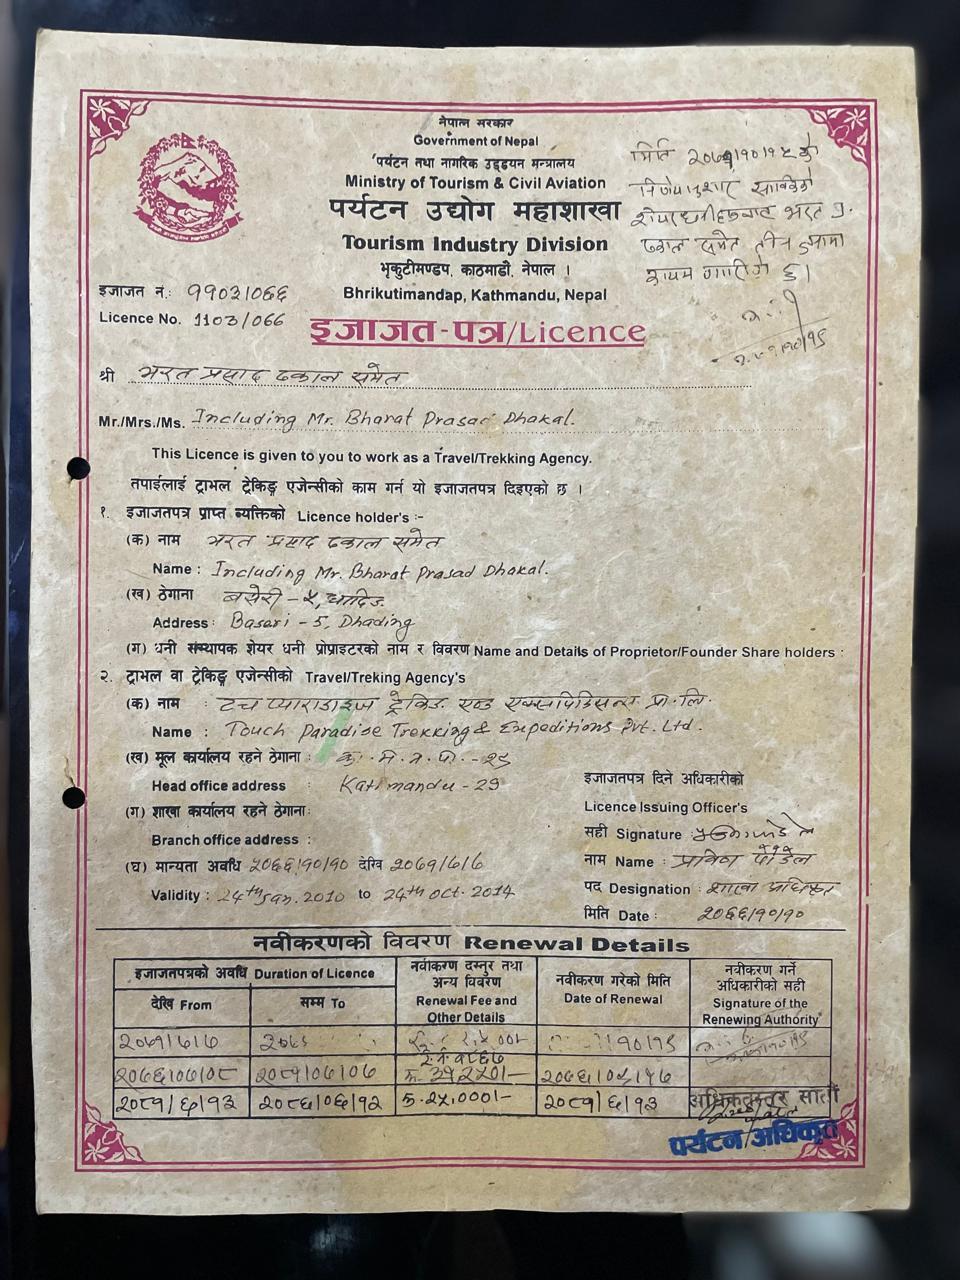 नेपाल सरकार
Government of Nepal
पर्यटन तथा नागरिक उड्डयन मन्त्रालय
Ministry of Tourism & Civil Aviation
पर्यटन उद्योग महाशाखा
Tourism Industry Division
भृकुटीमण्डप, काठमाडौं, नेपाल ।
Bhrikutimandap, Kathmandu, Nepal
मिति
समेत तीन
कायम
इजाजत नं.: ११०३।०६६
Licence No. 1103/066
इजाजत-पत्र/Licence
श्री भरत प्रसाद ढकाल समेत
Mr./Mrs./Ms. Including Mr. Bharat Prasad Dhakal.
This Licence is given to you to work as a Travel/Trekking Agency.
तपाईलाई ट्राभल ट्रेकिङ्ग एजेन्सीको काम गर्न यो इजाजतपत्र दिइएको छ ।
१. इजाजतपत्र प्राप्त ब्यक्तिको Licence holder's :-
(क) नाम भरत प्रसाद ढकाल समेत
Name : Including Mr. Bharat Prasad Dhakal.
(ख) ठेगाना बसेरी - ५, धादिङ
Address : Baseri - 5, Dhading
(ग) धनी संस्थापक शेयर धनी प्रोप्राइटरको नाम र विवरण Name and Details of Proprietor/Founder Share holders :
२. ट्राभल वा ट्रेकिङ्ग एजेन्सीको Travel/Treking Agency's
(क) नाम : टच प्याराडाइज ट्रेकिङ एण्ड एक्सपिडिसन्स प्रा. लि.
Name : Touch Paradise Trekking & Expeditions Pvt. Ltd.
(ख) मूल कार्यालय रहने ठेगाना : का. म. न. पा. - २९
Head office address : Kathmandu - 29
(ग) शाखा कार्यालय रहने ठेगाना:
Branch office address :
(घ) मान्यता अवधि २०६६।१०।१० देखि २०७१।७।७
Validity : 24th Jan. 2010 to 24th Oct. 2014
इजाजतपत्र दिने अधिकारीको
Licence Issuing Officer's
सही Signature :
नाम Name : पौडेल
पद Designation : शाखा अधिकृत
मिति Date : २०६६।१०।१०
नवीकरणको विवरण Renewal Details
इजाजतपत्रको अवधि Duration of Licence
देखि From
सम्म To
नवीकरण दस्तुर तथा अन्य विवरण Renewal Fee and Other Details
नवीकरण गरेको मिति Date of Renewal
नवीकरण गर्ने अधिकारीको सही Signature of the Renewing Authority
२०७१।७।७
२०७६।०७।०८ २०८१।०७।०७
२०८१/६/१३ २०८६/०६/१२ २०८१/६/१३
पर्यटन अधिकृत